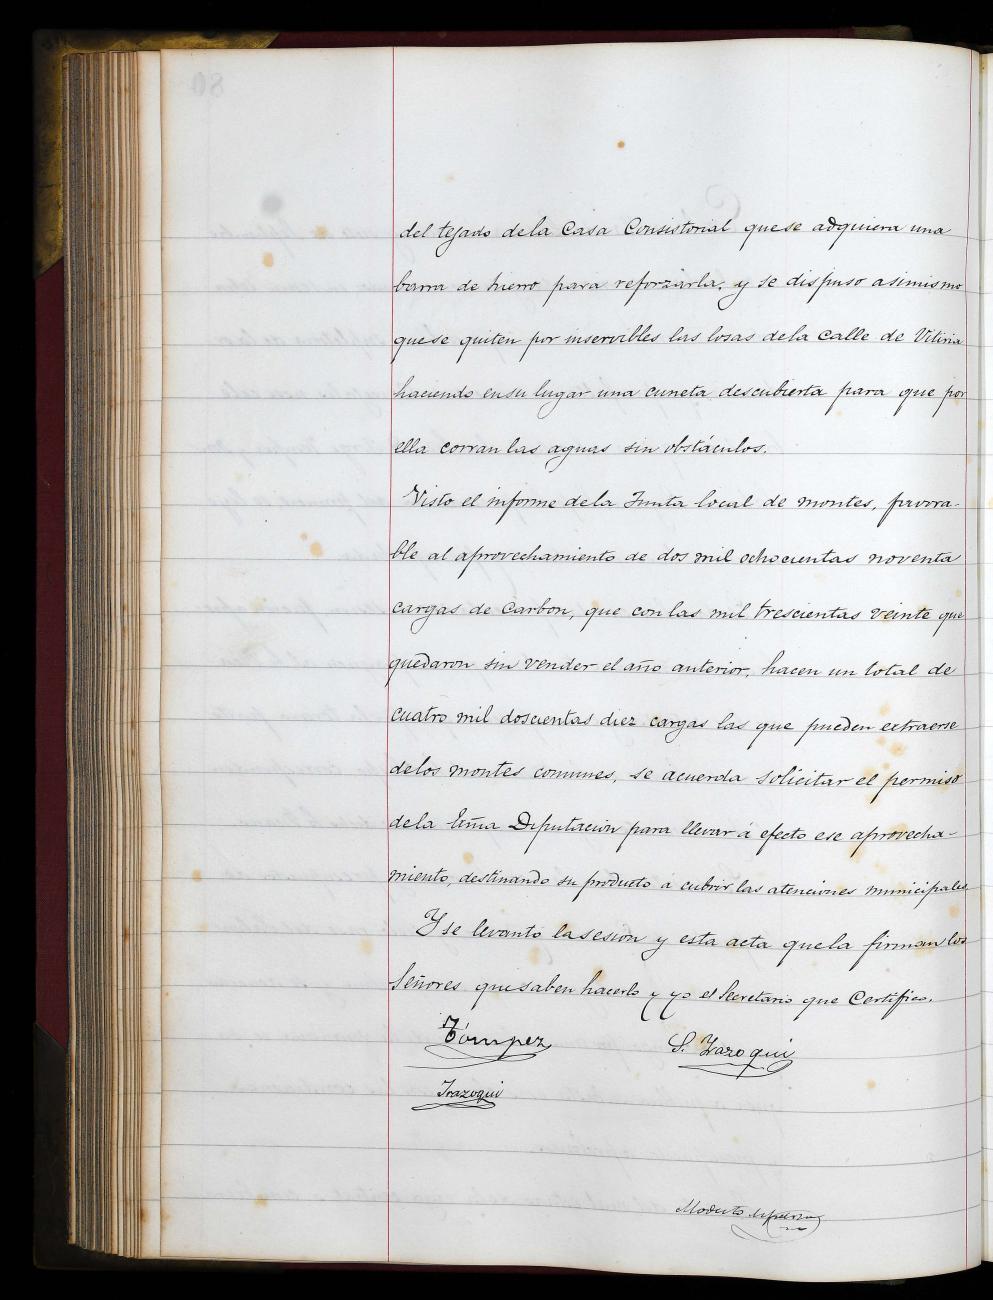 del tejado dela Casa Consistorial quese adquiera una
barra de hierro para reforzarla, y se dispuso asimismo
quese quiten por inservibles las losas dela Calle de Vitiria
haciendo ensu lugar una cuneta descubierta para que por
ella corran las aguas sin obstáculos.
Visto el informe dela Junta local de montes, favora-
ble al aprovechamiento de dos mil ochocientas noventa
cargas de carbon, que con las mil trescientas veinte que
quedaron sin vender el año anterior, hacen un total de
cuatro mil doscientas diez cargas las que pueden extraerse
delos montes comunes, se acuerda solicitar el permiso
dela Exma Diputacion para llevar á efecto ese aprovecha-
miento, destinando su producto á cubrir las atenciones municipales
Y se levantó la sesion y esta acta quela firman los
Señores que saben hacerlo y yo el Secretario que Certifico.
S. Irazoqui
Irazoqui
Modesto